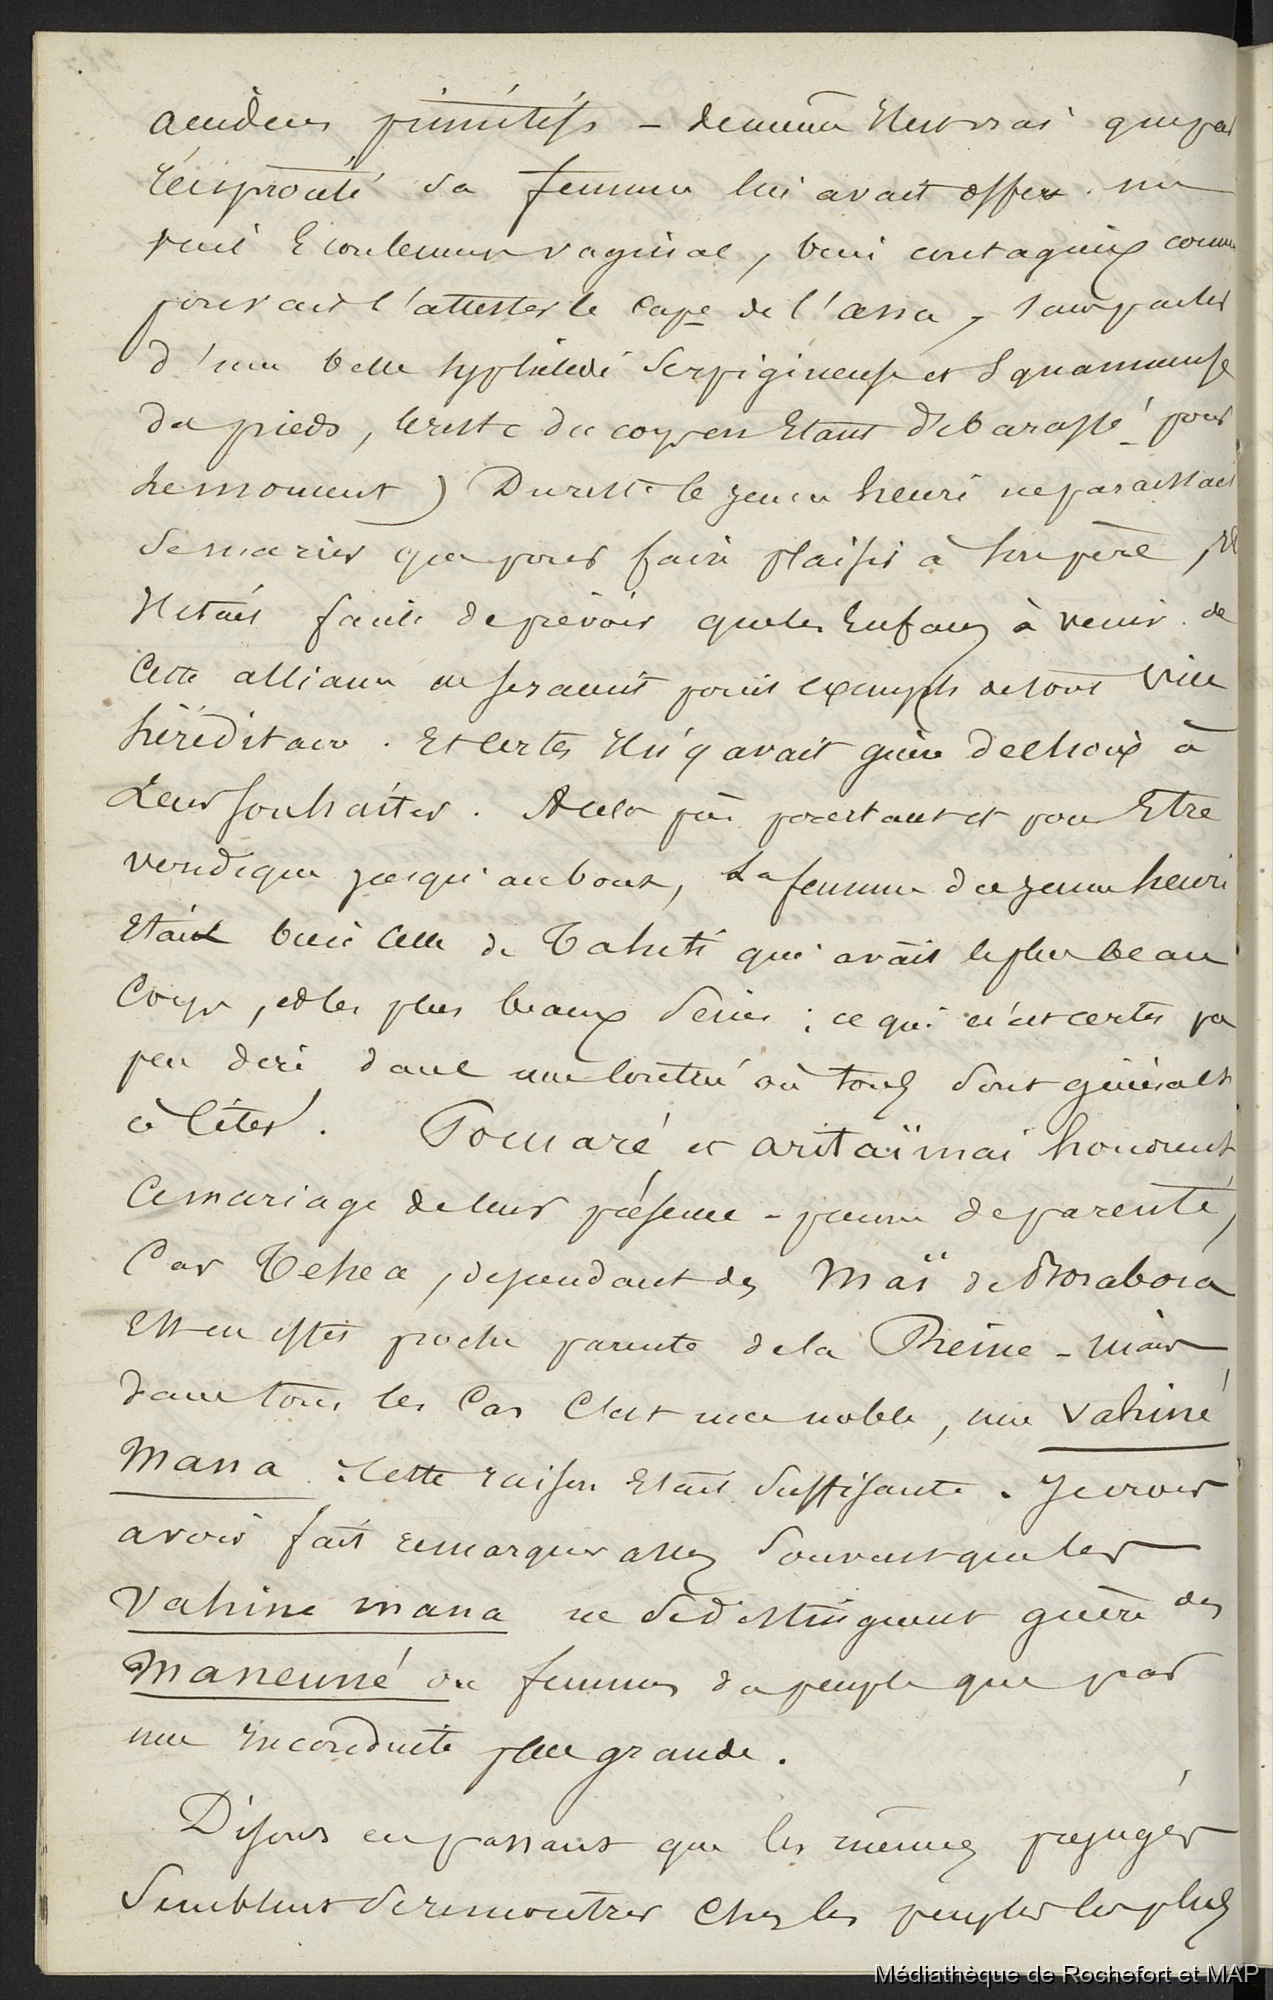 accidens primitifs – de même il est vrai que par
réciprocité sa femme lui avait offert un
petit écoulement vagінal, bien contagieux comme
pouvait l'attester le cap.e de l'œna, sans parler
d'une belle syphilide serpigineuse et squammeuse
du pieds, le reste du corps en étant débarassé pour
le moment) Du reste le jeune henri ne paraissait
se marier que pour faire plaisir à son père, et
il était facile de prévoir que les enfans à venir de
cette alliance ne seraient point exempts de tout vice
héréditaire. Et certes il n'y avait guère de choix à
leur souhaiter. A cela près pourtant et pour être
véridique jusqu'au bout, la femme du jeune henri
était bien celle de Tahiti qui avait le plus beau
corps, et les plus beaux seins ; ce qui n'est certes pas
peu dire dans une contrée où tous sont généralt
à citer. Pomaré et aritaïmai honorent
ce mariage de leur présence – parenté,
car Tehea, dépendant des Maï de Borabora
est en effet proche parente de la Reine – mais
dans tous les cas c'est une noble, une vahiné
mana. Cette raison était suffisante. Je crois
avoir fait remarquer assez souvent que les
vahine mana ne se distinguent guère des
maneuné ou femmes du peuple que par
une inconduite plus grande.
Disons en passant que les mêmes préjugés
semblent se remontrer chez les peuples les plus
Médiathèque de Rochefort et MAP